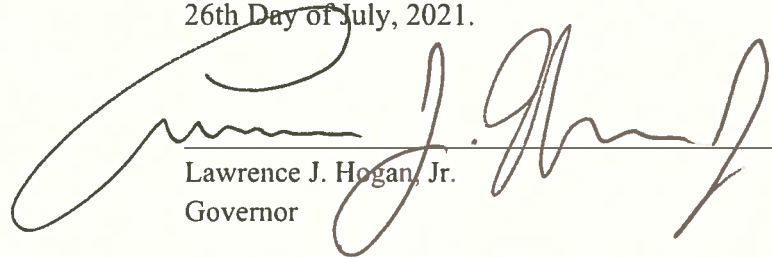 26th Day of July, 2021.
Lawrence J. Hogan, Jr.
Governor